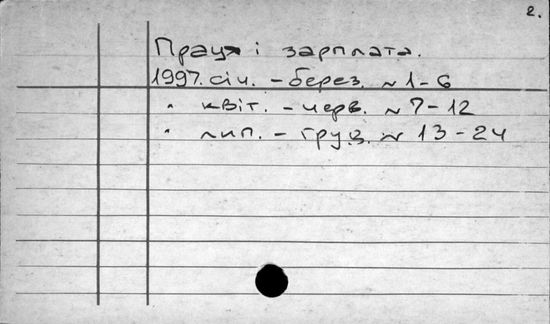 2.
Праця і зарплата.
1997. січ. – берез. № 1–6
" квіт. – черв. № 7–12
" лип. – груд. № 13–24